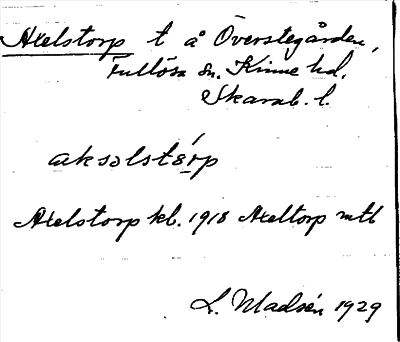 Axelstorp t å Överstegården,
Fullösa sn. Kinne hd.
Skarab. l.
aksəlstɵ́rp
Axelstorp kb. 1918 Axeltorp mtl
L. Madsén 1929